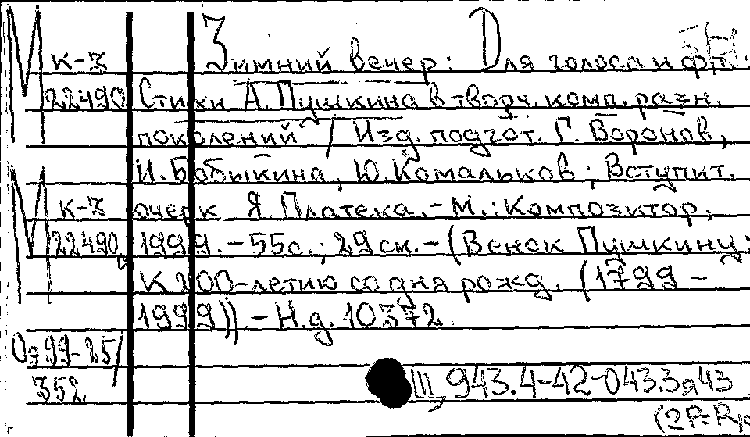 М К-3 Зимний вечер: Для голоса и фп.:
22490 Стихи А. Пушкина в творч. комп. разн.
поколений / Изд. подгот. Г. Воронов,
И. Бобыкина, Ю. Комальков; Вступит.
М К-3 очерк Я. Платека. - М.: Композитор,
22490, 1999. - 55с.; 29см. - (Венок Пушкину:
К 200-летию со дня рожд. (1799 -
1999)) - Н.д. 10372.
Оэ 99-25/
352 III, 943.4-42-043.3я43
(2Р=Р